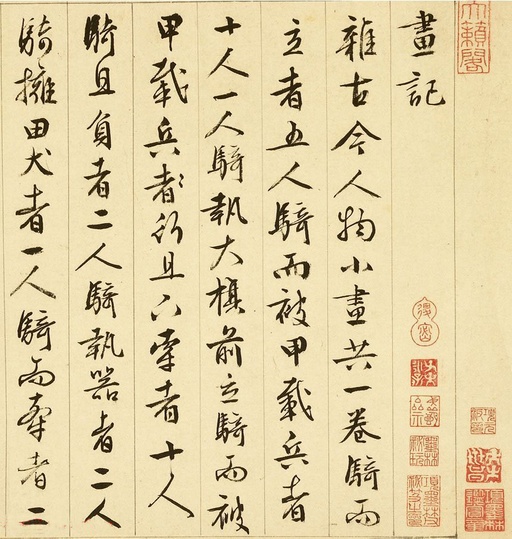 天籟閣
畫記
雜古今人物小畫共一卷騎而
立者五人騎而被甲載兵者
十人一人騎執大旗前立騎而被
甲載兵者行且下牽者十人
騎且負者二人騎執器者二人
騎擁田犬者一人騎而牽者二